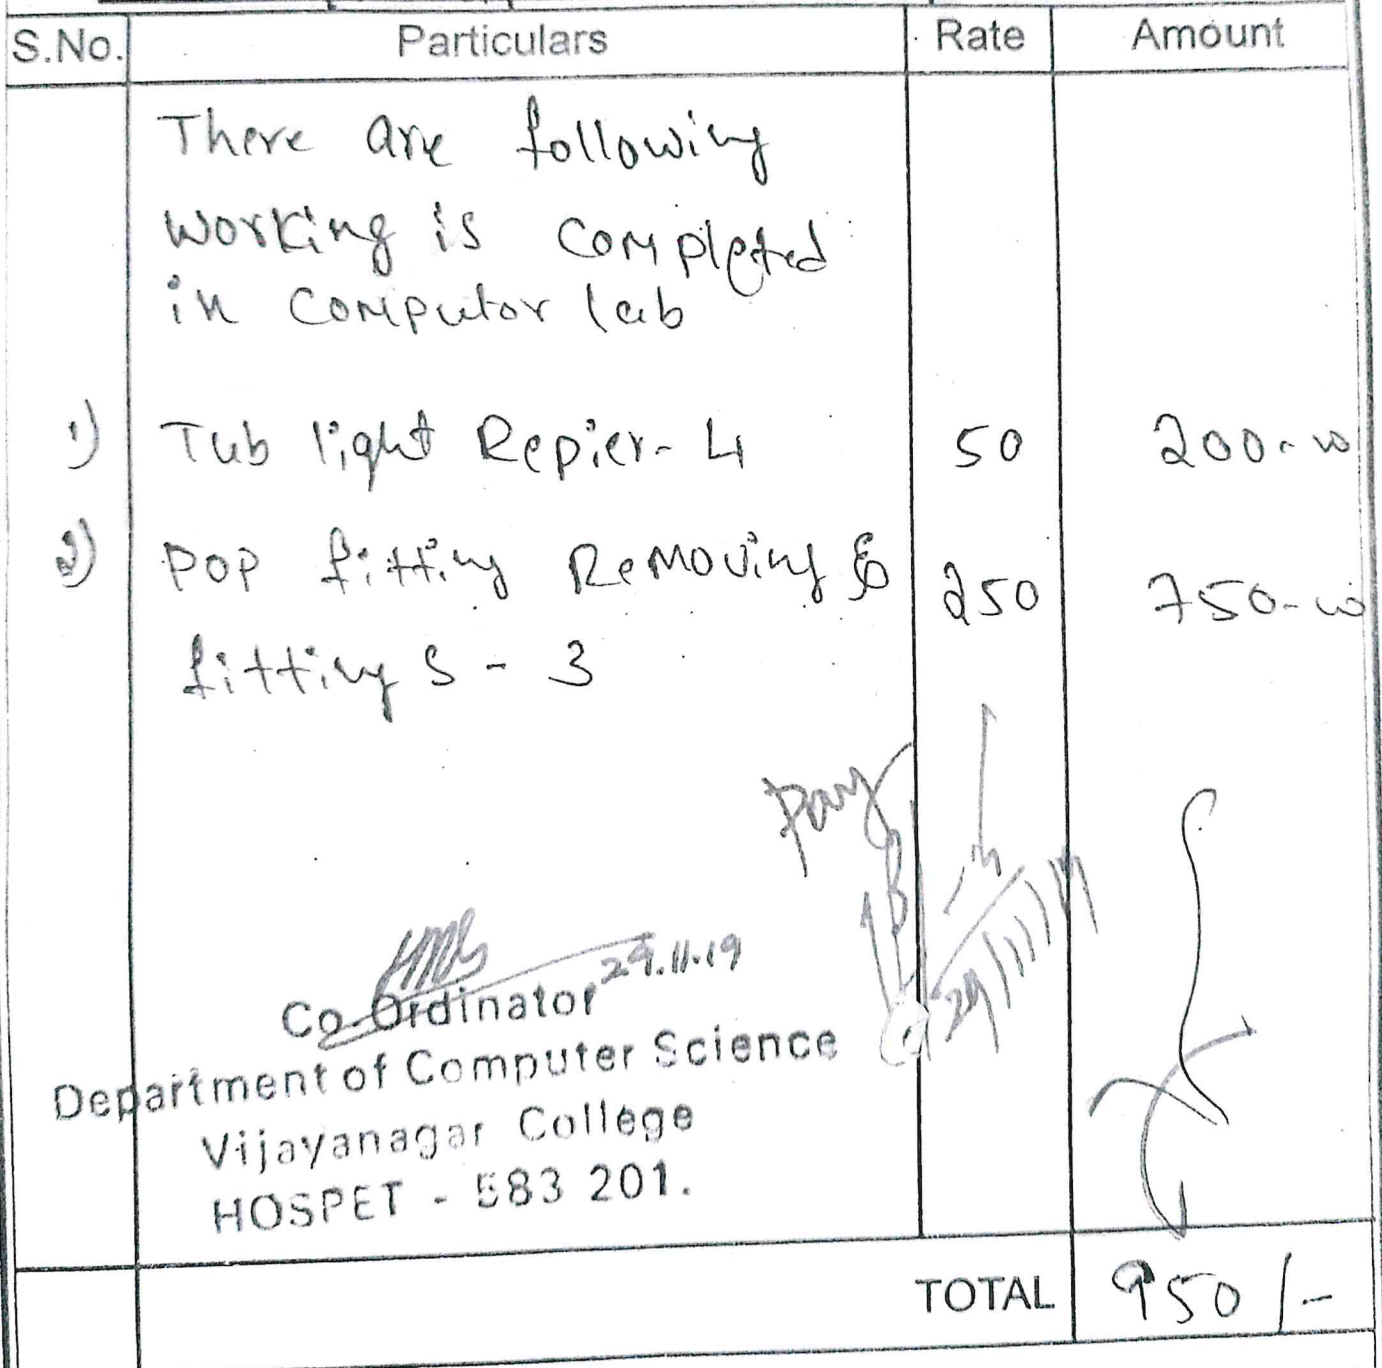 S.No. Particulars Rate Amount
There are following
working is completed
in Computor lab
1) Tub light Repier - 4 50 200-00
2) POP fitting Removing & 250 750-00
fittings - 3
Pay
29/11/19
29.11.19
Co-Ordinator
Department of Computer Science
Vijayanagar College
HOSPET - 583 201.
TOTAL 950/-